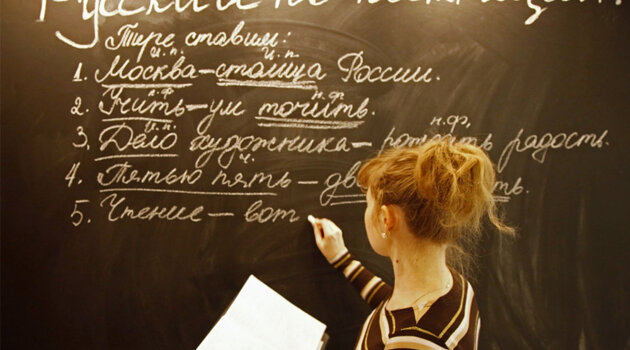 Русский
Тире ставим:
и.п. и.п.
1. Москва – столица России.
н.ф н.ф.
2. Учить – ум точить.
и.п. н.ф.
3 Дело художника – рождать радость.
ч.
4. Пятью пять –
5. Чтение – вот